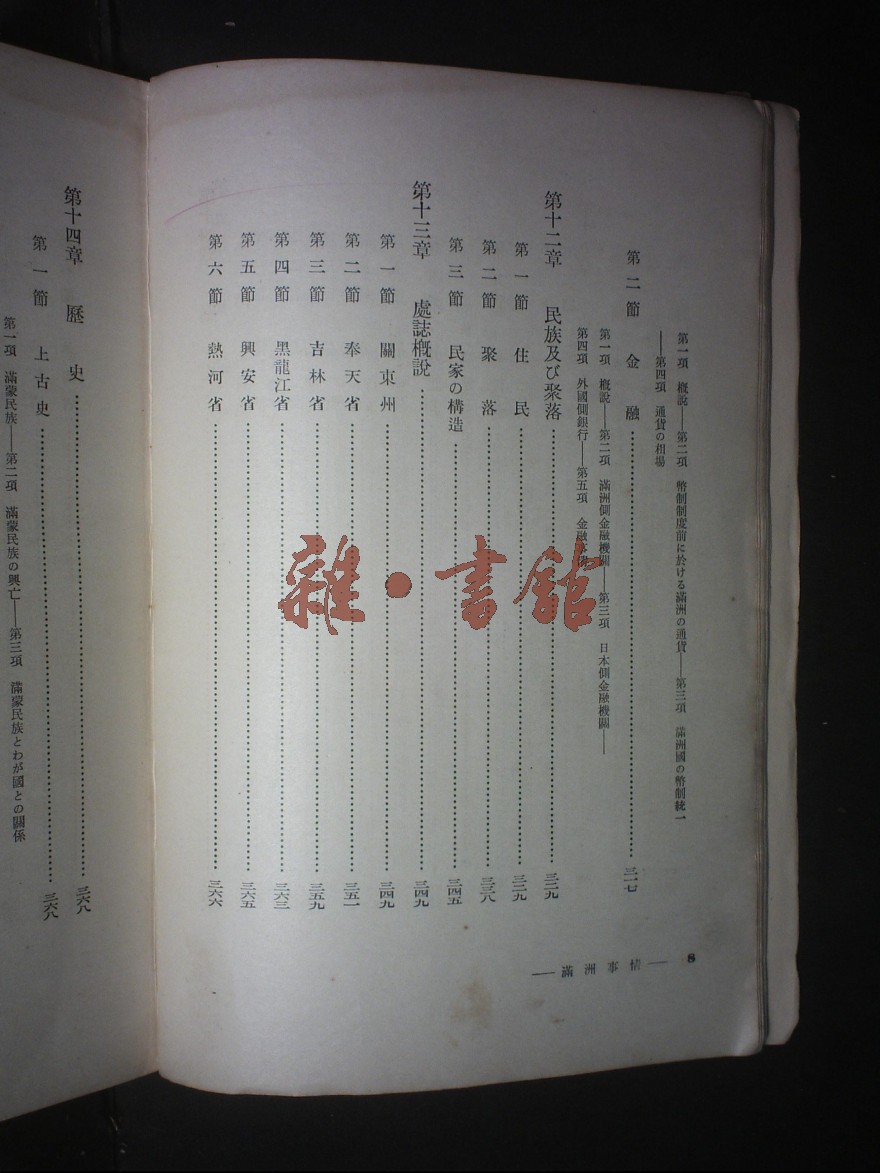 第一項 概說——第二項 幣制制度前に於ける滿洲の通貨——第三項 滿洲國の幣制統一
——第四項 通貨の相場
第二節 金融……三一七
第一項 概說——第二項 滿洲側金融機關——第三項 日本側金融機關——
第四項 外國側銀行——第五項 金融
第十二章 民族及び聚落……三二九
第一節 住民……三二九
第二節 聚落……三三八
第三節 民家の構造……三四五
第十三章 處誌槪說……三四九
第一節 關東州……三四九
第二節 奉天省……三五一
第三節 吉林省……三五九
第四節 黑龍江省……三六三
第五節 興安省……三六五
第六節 熱河省……三六六
8
——滿洲事情——
第十四章 歷史……三六八
第一節 上古史……三六八
第一項 滿蒙民族——第二項 滿蒙民族の興亡——第三項 滿蒙民族とわが國との關係
雜·書館